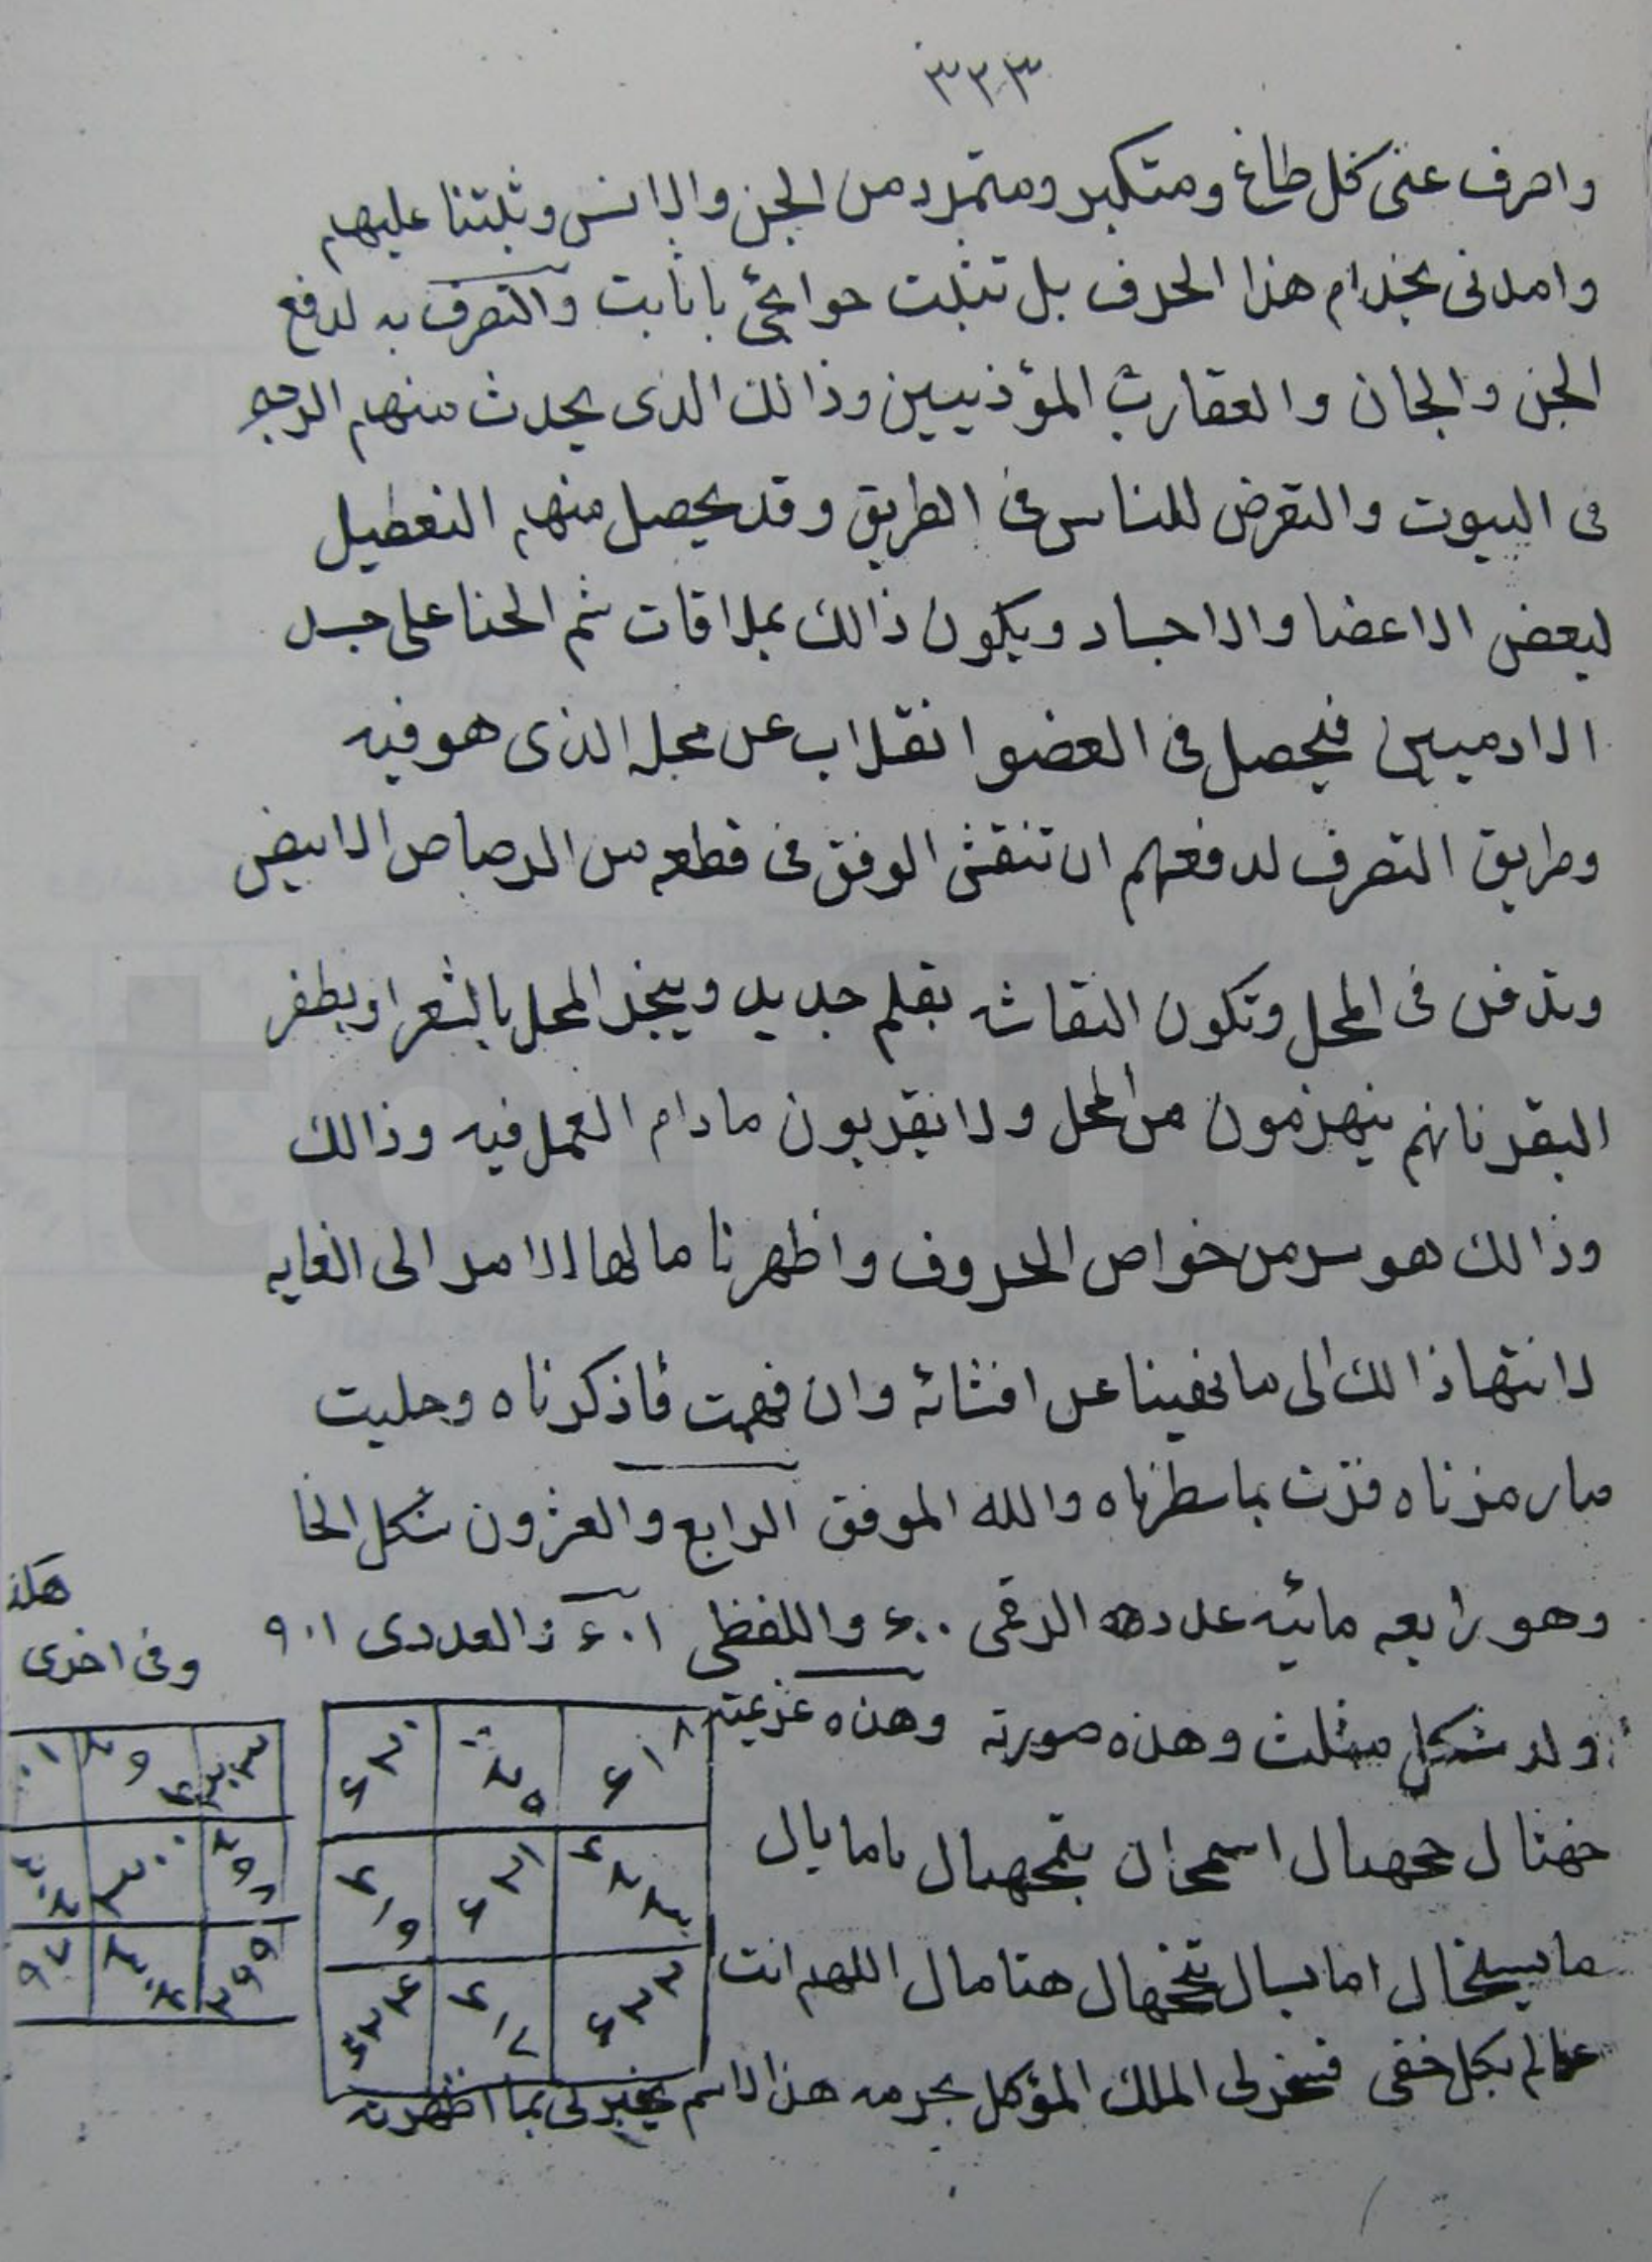 ٣٣٣
واصرف عنى كل طاغ ومتكبر ومتمرد من الجن والانس وثبتنا عليهم
وامدنى بخدام هذا الحرف بل تثبت حوائجى يا ثابت والتصرف به لدفع
الجن والجان والعقارب المؤذيين وذالك الذى يحدث منهم الرجم
فى البيوت والتعرض للناس فى الطريق وقد يحصل منهم التعطيل
لبعض الاعضا والاجساد ويكون ذالك بملاقات ثم الحنا على جسد
الادميين فيحصل فى العضو انقلاب عن محله الذى هو فيه
وطريق التصرف لدفعهم ان تنقش الوفق فى قطعه من الرصاص الابيض
وتدفن فى المحل وتكون النقاشه بقلم حديد ويبخر المحل بالشعر او بظفر
البقر فانهم ينهزمون من المحل ولا يقربون مادام العمل فيه وذالك
وذالك هو سر من خواص الحروف واظهرنا مالها الامر الى الغايه
لانتها ذالك الى ما نهينا عن افشائه وان فهمت ما ذكرناه وحليت
ما رمزناه فزت بما سطرناه والله الموفق الرابع والعشرون شكل الخا
وهو رابعه مائيه عدده الرقمى ٦٠٠ واللفظى ٦٠١ والعددى ٩٠١
هكذ
وفى اخرى
وله شكل مثلث وهذه صورته وهذه عزيمته
اسمحران
اللهم انت
عالم بكل خفى فسخر لى الملك المؤكل بحرمه هذا الاسم يخبر لى بما اظهرته